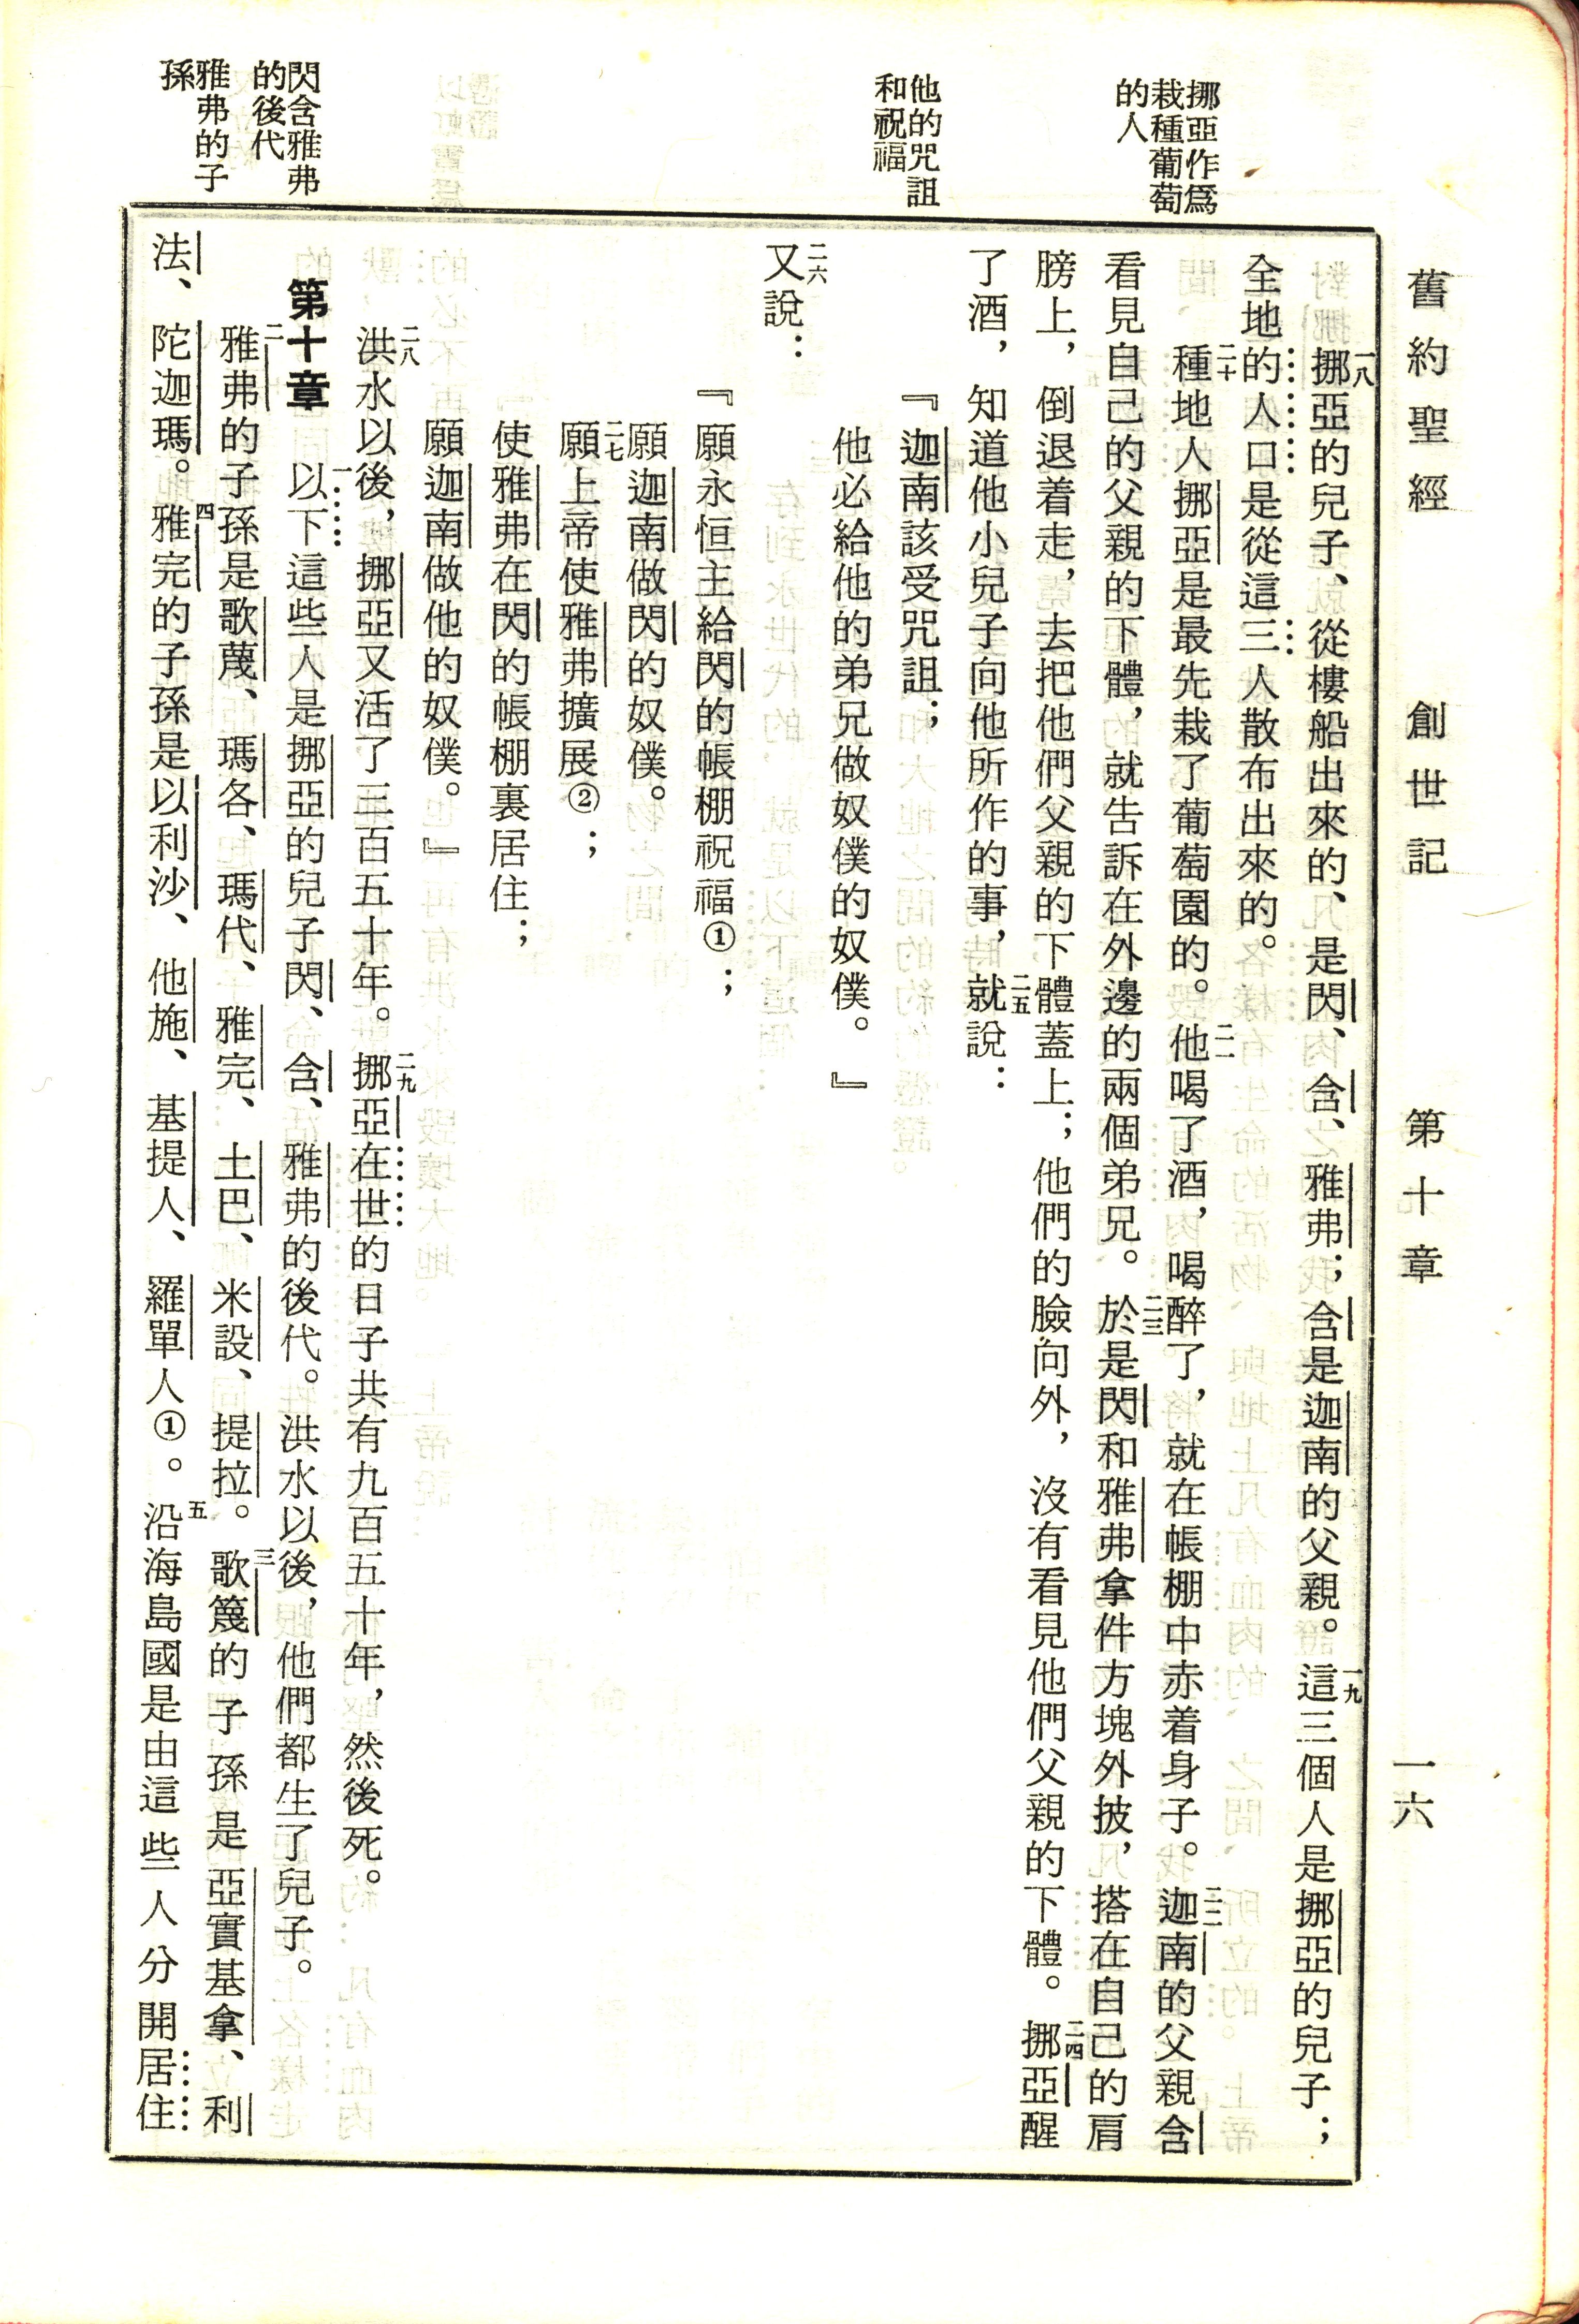 舊約聖經　創世記　第十章　一六
挪亞作爲
栽種葡萄
的人
他的咒詛
和祝福
閃含雅弗
的後代
雅弗的子
孫
一八挪亞的兒子、從樓船出來的、是閃、含、雅弗；含是迦南的父親。一九這三個人是挪亞的兒子；
全地的人口是從這三人散布出來的。
二十種地人挪亞是最先栽了葡萄園的。二一他喝了酒，喝醉了，就在帳棚中赤着身子。二二迦南的父親含
看見自己的父親的下體，就告訴在外邊的兩個弟兄。二三於是閃和雅弗拿件方塊外披，搭在自己的肩
膀上，倒退着走，去把他們父親的下體蓋上；他們的臉向外，沒有看見他們父親的下體。二四挪亞醒
了酒，知道他小兒子向他所作的事，二五就說：
『迦南該受咒詛；
他必給他的弟兄做奴僕的奴僕。』
二六又說：
『願永恒主給閃的帳棚祝福①；
願迦南做閃的奴僕。
二七願上帝使雅弗擴展②；
使雅弗在閃的帳棚裏居住；
願迦南做他的奴僕。』
二八洪水以後，挪亞又活了三百五十年。二九挪亞在世的日子共有九百五十年，然後死。
第十章　一以下這些人是挪亞的兒子閃、含、雅弗的後代。洪水以後，他們都生了兒子。
二雅弗的子孫是歌蔑、瑪各、瑪代、雅完、土巴、米設、提拉。三歌篾的子孫是亞實基拿、利
法、陀迦瑪。四雅完的子孫是以利沙、他施、基提人、羅單人①。五沿海島國是由這些人分開居住